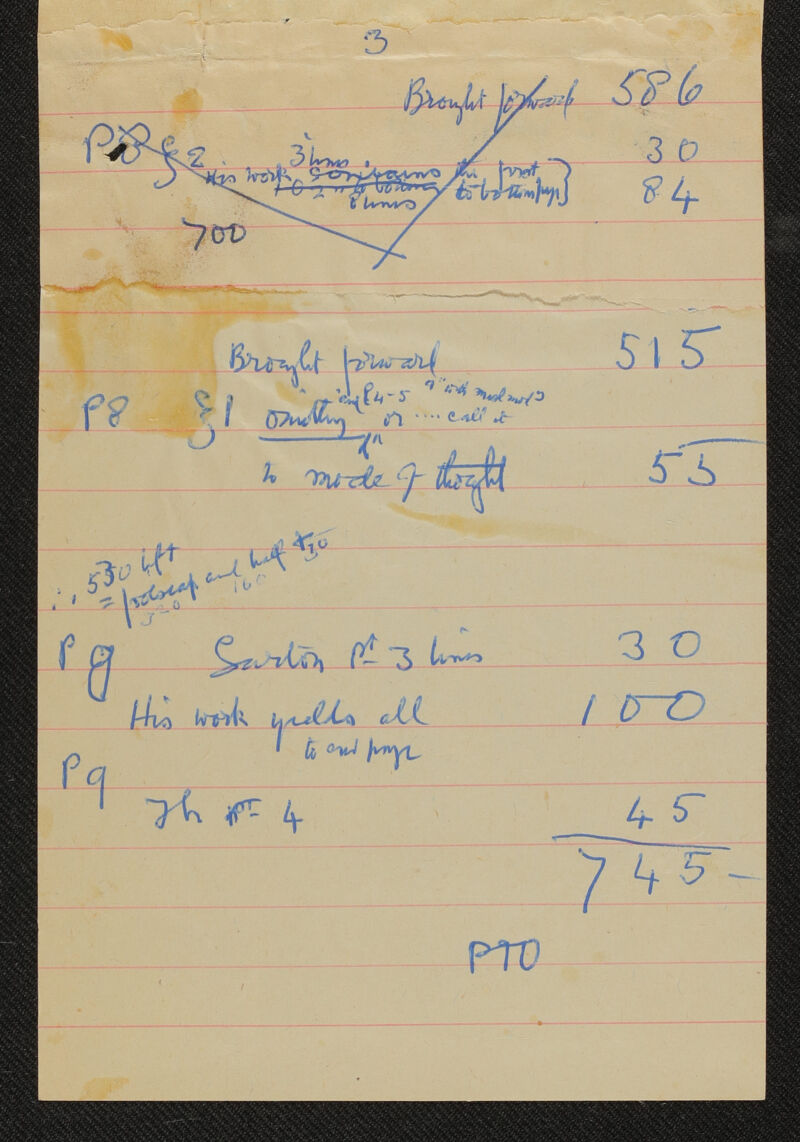 3
Brought forward 586
P8 § 2 3 lines 30
His work contains the first
8 lines to bottom page} 84
700
Brought forward 515
P8 § 1 omitting or .... call it
to mode of thought 55
∴ 530 left
= foolscap and half + 30
320 160
P 9 Sarton Pt 3 lines 30
His work yields all 100
to end page
P 9
The 4 45
745 —
PTO